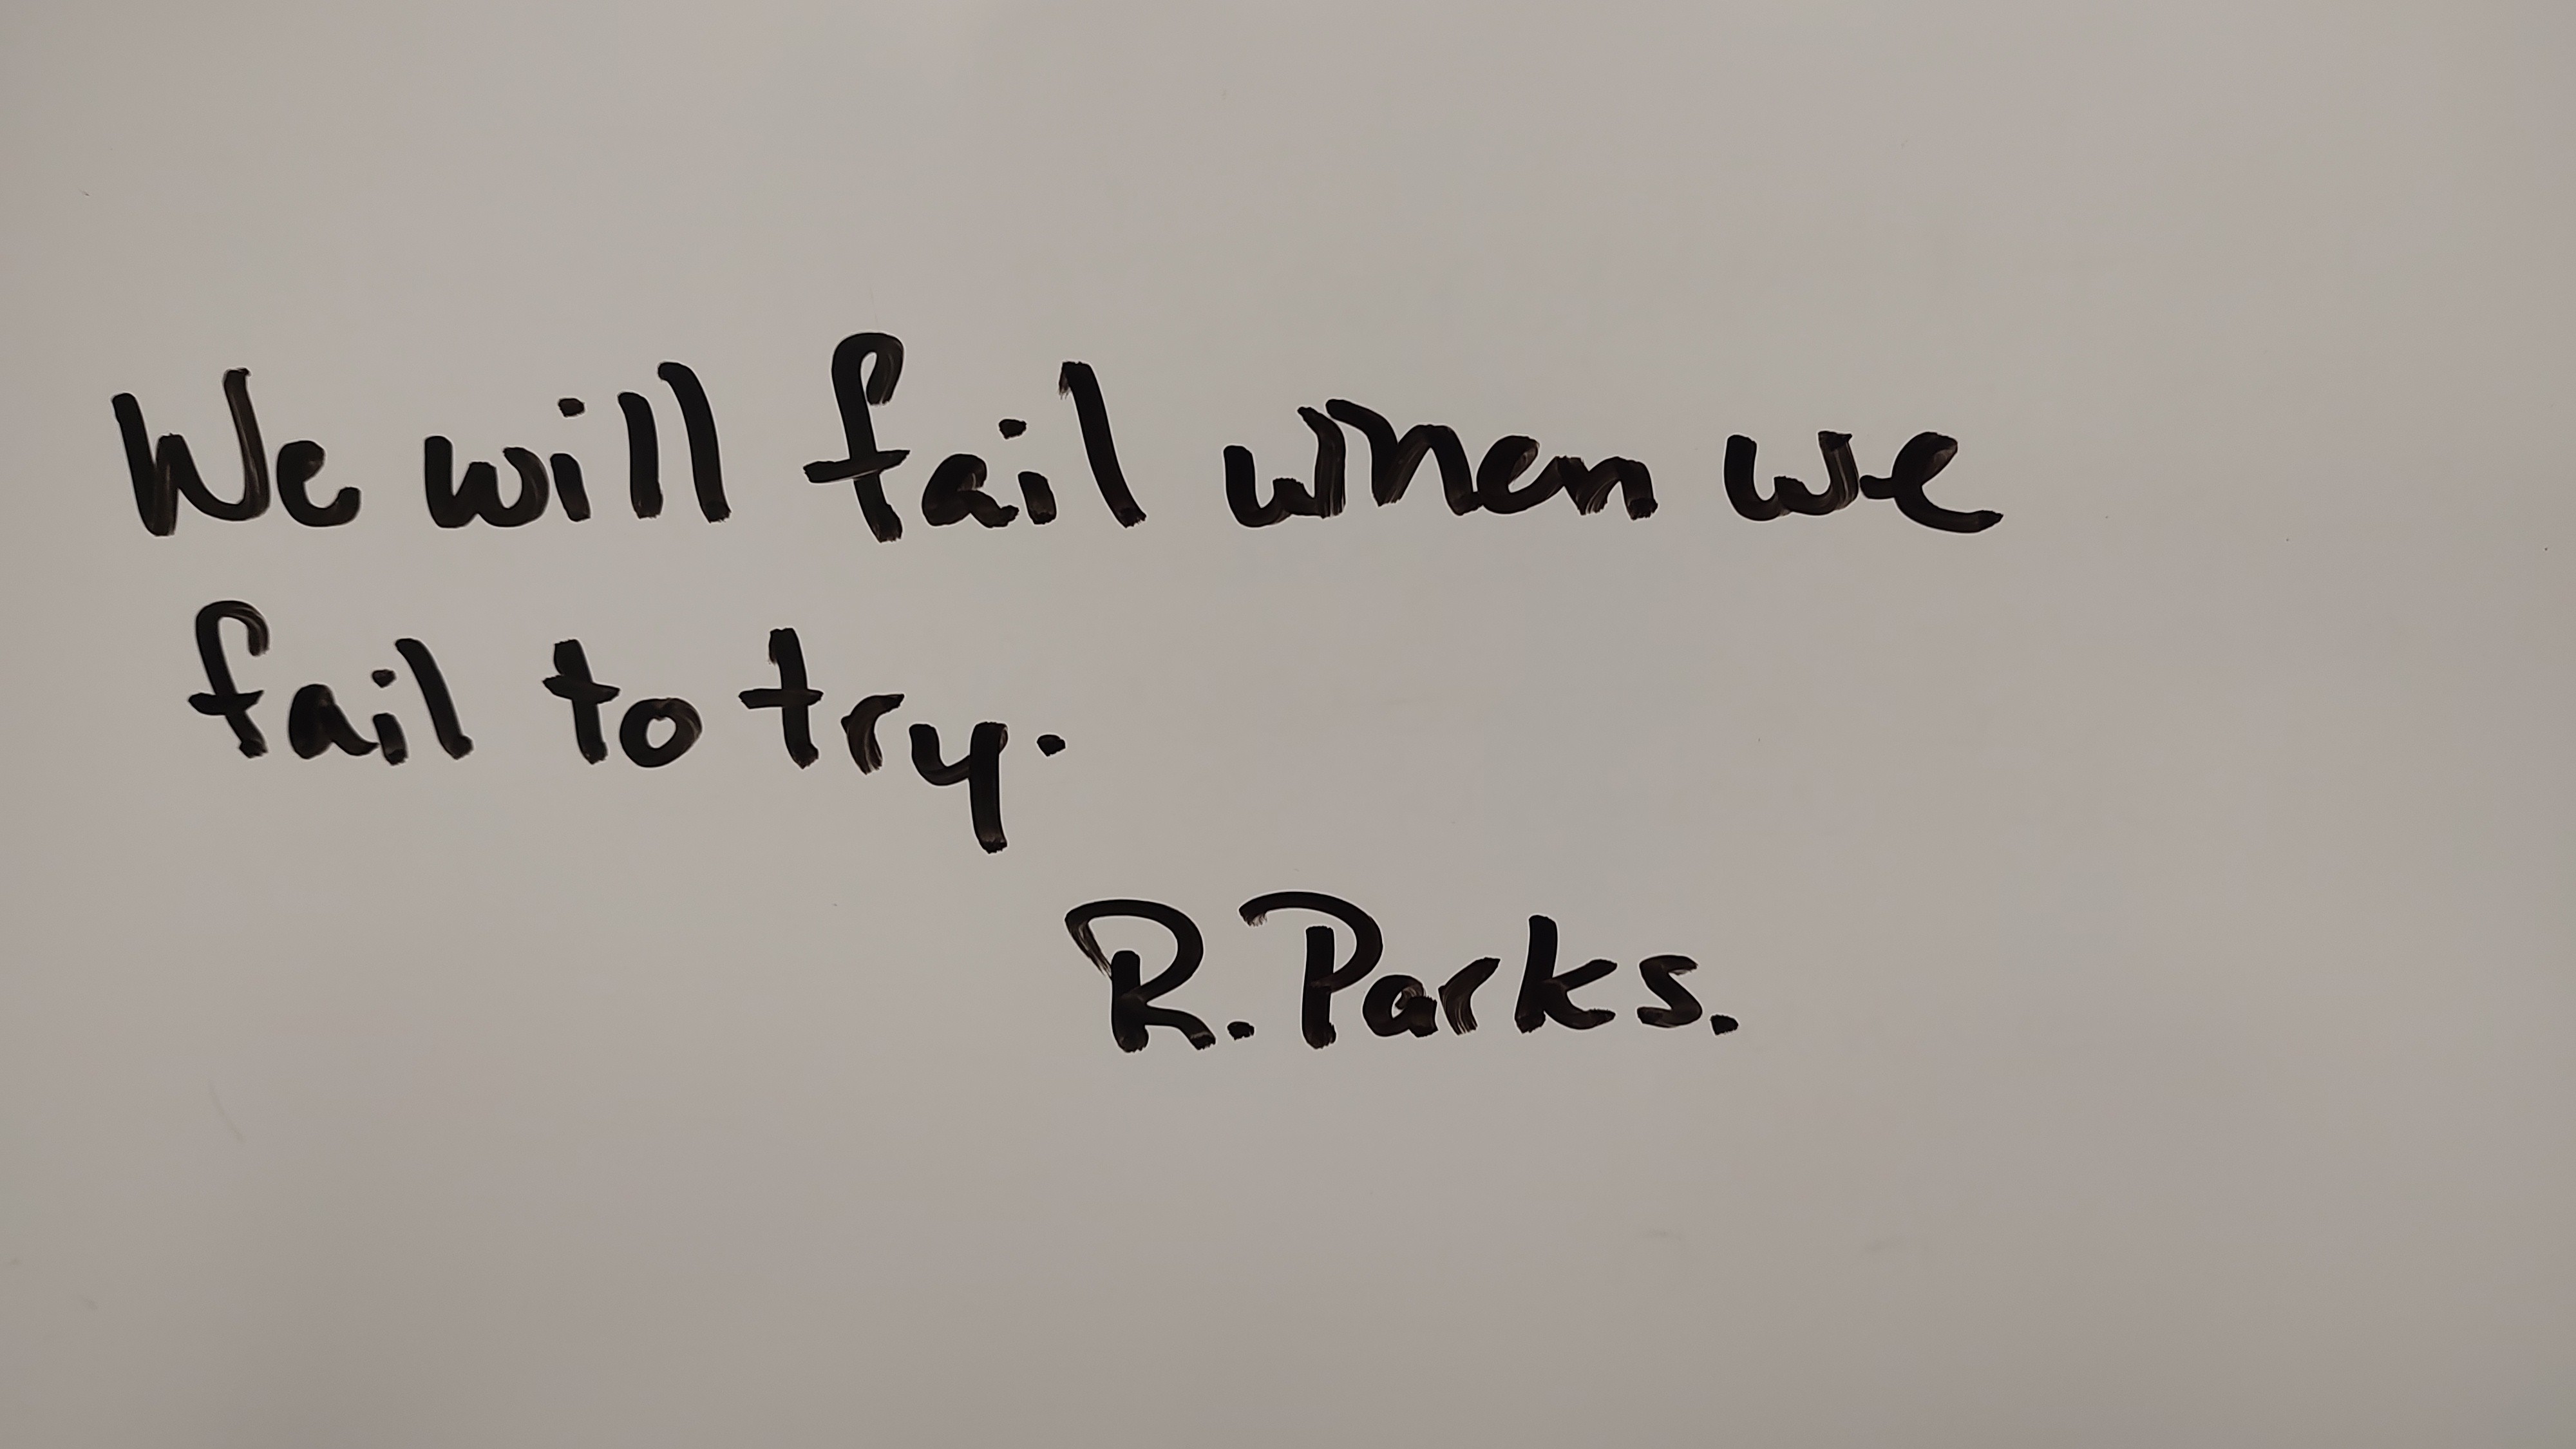 We will fail when we
fail to try.
R. Parks.